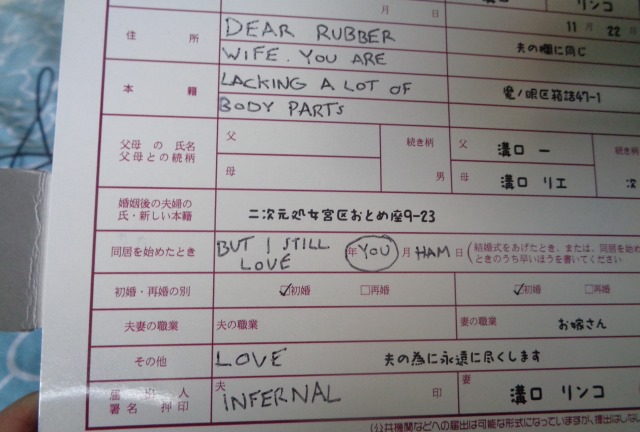 溝口 リンコ
月 日
11月 22日
住 所 DEAR RUBBER
WIFE. YOU ARE 夫の欄に同じ
本 籍 LACKING A LOT OF
BODY PARTS
父母の氏名
父母との続き柄
父 続き柄 父 溝口 一 続き柄
母 男 母 溝口 リエ 次
婚姻後の夫婦の
氏・新しい本籍
二次元処女宮区おとめ座9-23
同居を始めたとき BUT I STILL
LOVE 年 YOU 月 HAM 日
(結婚式をあげたとき、または、同居を始め
たときのうち早いほうを書いてください
初婚・再婚の別 ☑初婚 □再婚 ☑初婚 □再婚
夫妻の職業 夫の職業 妻の職業 お嫁さん
その他 LOVE 夫の為に永遠に尽くします
届出人
署名押印
夫 INFERNAL 印 妻 溝口 リンコ
(公共機関などへの届出は可能な形式になっていますが、提出はしな